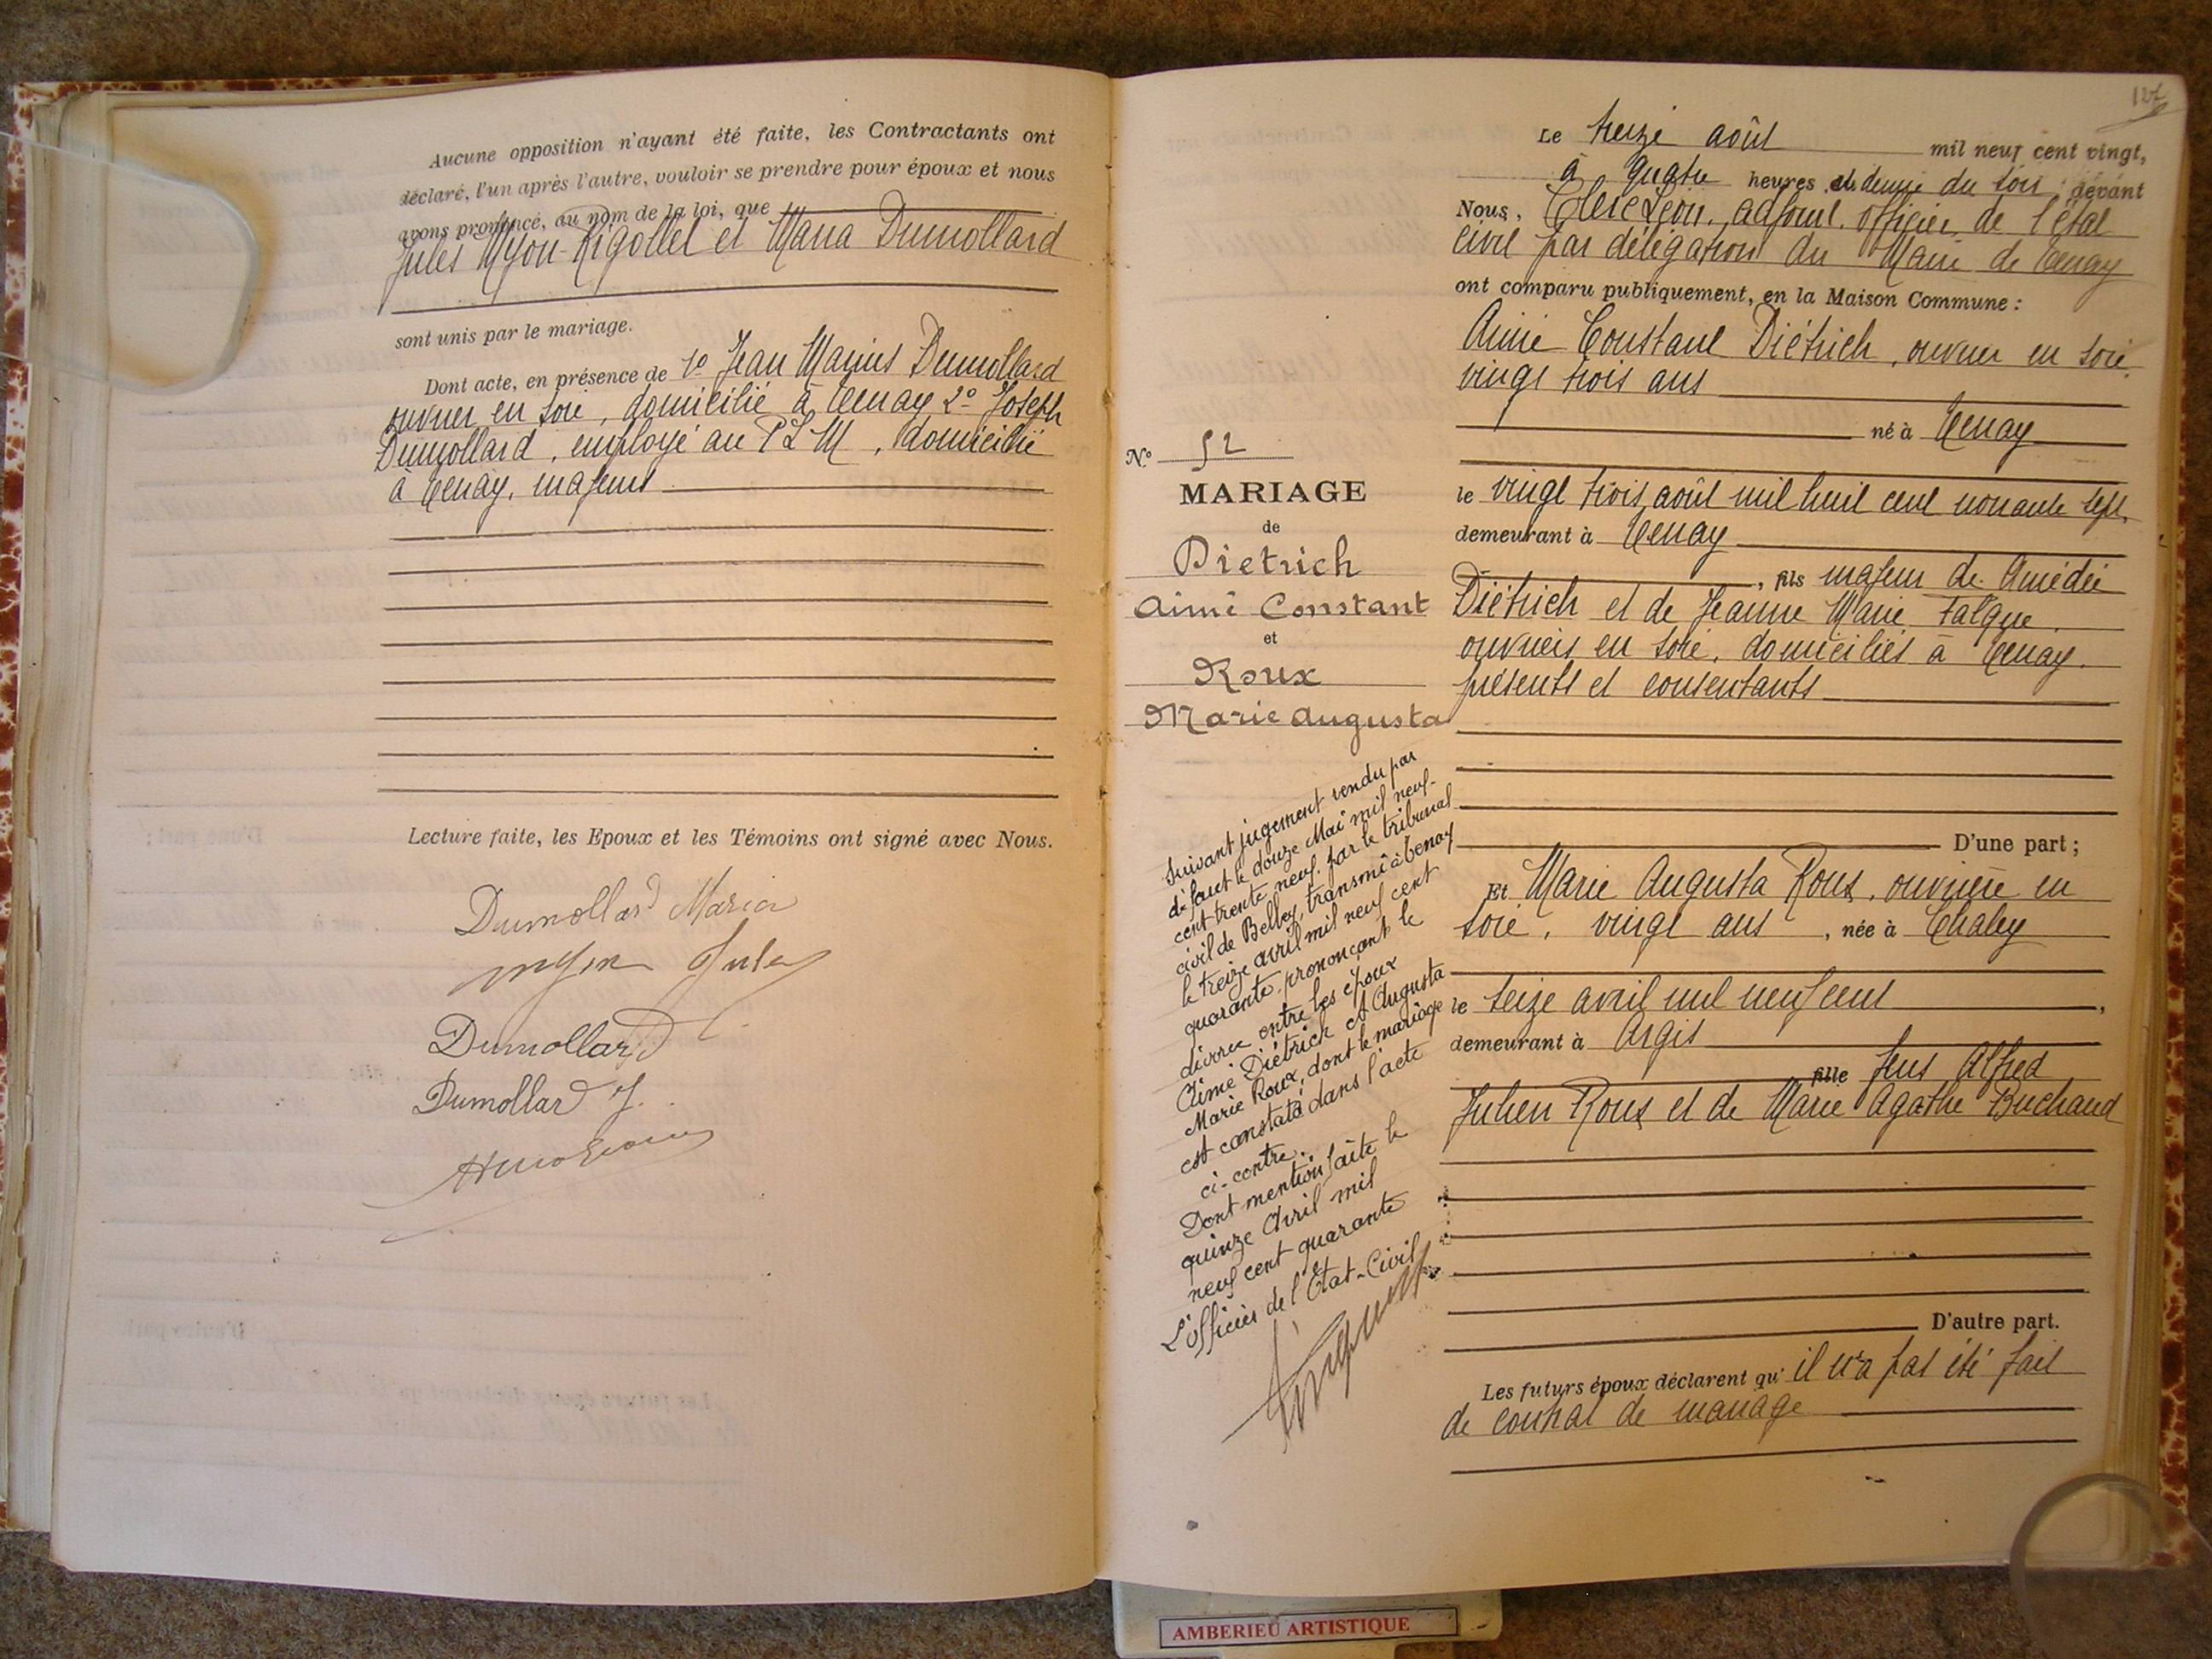 Aucune opposition n'ayant été faite, les Contractants ont
déclaré, l'un après l'autre, vouloir se prendre pour époux et nous
avons prononcé, au nom de la loi, que
Jules Myon-Rigollet et Maria Dumollard
sont unis par le mariage.
Dont acte, en présence de 1º Jean Marius Dumollard
ouvrier en soie, domicilié à Tenay, 2º Joseph
Dumollard, employé au PLM, domicilié
à Tenay, majeurs
Lecture faite, les Epoux et les Témoins ont signé avec Nous.
Dumollard Maria
myon Jules
Dumollard
Dumollard J.
127
Le treize août mil neuf cent vingt,
à quatre heures et demie du soir devant
Nous, Clerc Léon, adjoint, officier de l'état
civil par délégation du Maire de Tenay
ont comparu publiquement, en la Maison Commune :
Aimé Constant Diétrich, ouvrier en soie,
vingt trois ans
né à Tenay
le vingt trois août mil huit cent nonante sept,
demeurant à Tenay
, fils majeur de Amédée
Diétrich et de Jeanne Marie Falque,
ouvriers en soie, domiciliés à Tenay,
présents et consentants
D'une part ;
Et Marie Augusta Roux, ouvrière en
soie, vingt ans , née à Chaley
le seize avril mil neuf cent ,
demeurant à Argis
fille feus Alfred
Julien Roux et de Marie Agathe Buchaud
D'autre part.
Les futurs époux déclarent qu'il n'a pas été fait
de contrat de mariage
Nº 52
MARIAGE
de
Dietrich
Aimé Constant
et
Roux
Marie Augusta
Suivant jugement rendu par
défaut le douze Mai mil neuf-
cent trente neuf. par le tribunal
civil de Belley, transmé à Tenay
le treize avril mil neuf cent
quarante. prononçant le
divorce entre les époux
Aimé Diétrich et Augusta
Marie Roux, dont le mariage
est constaté dans l'acte
ci-contre.
Dont mention faite le
quinze Avril mil
neuf cent quarante
L'Officier de l'Etat-Civil,
AMBERIEU ARTISTIQUE